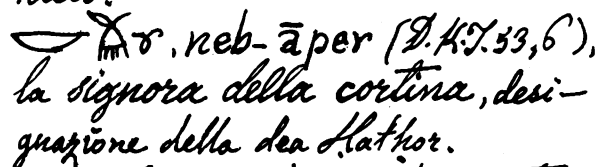 , neb-āper (D.K.J.53,6),
la signora della cortina, desi-
gnazione della dea Hathor.